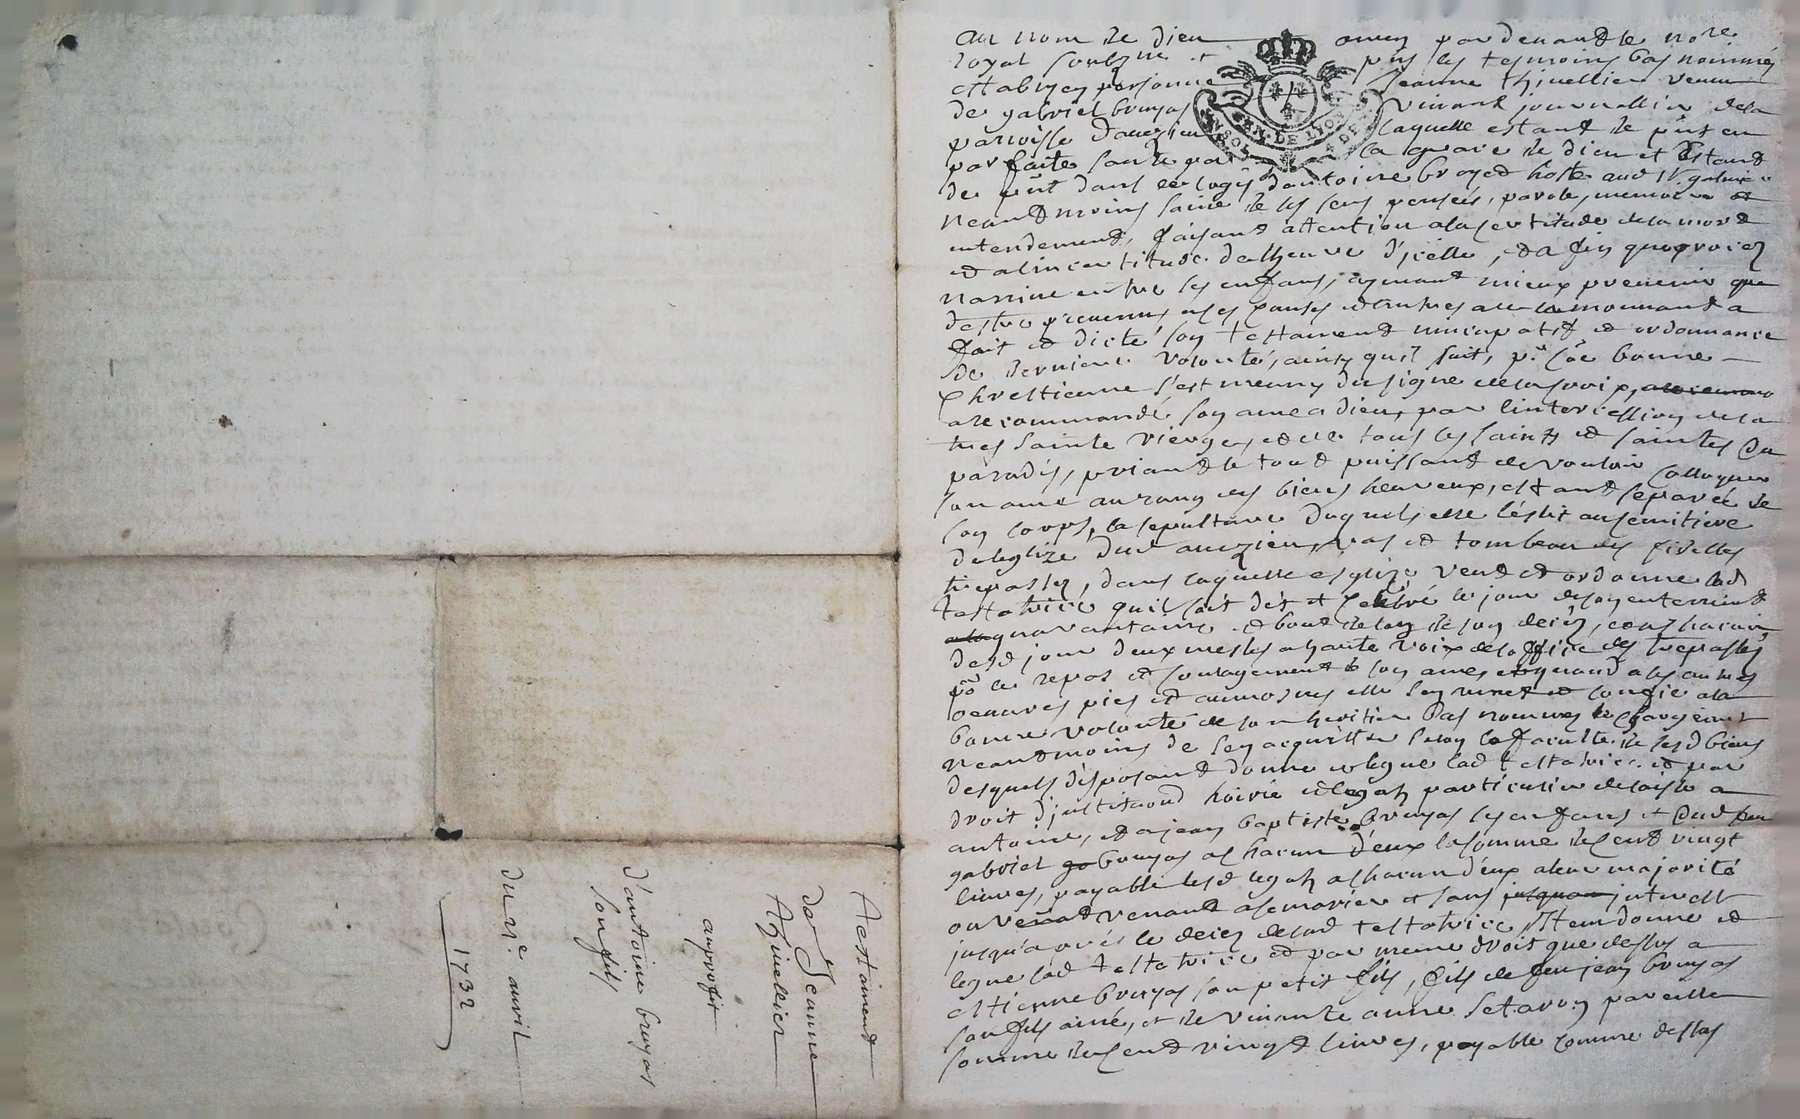 au nom de dieu amen par devant le no.re
royal soubzne et pns les tesmoins bas nommés
estably en personne Jeanne thivellier veuve
de gabriel bruyas vivant journallier de la
parroisse d'aveizieu laquelle estant de pnt en
parfaite santé par la grace de dieu et estant
de pnt dans le logis d'antoine broyed hoste aud St galmier
neantmoins saine de ses sens pensées, parole, memoire et
entendement, faisant attention a la certitude de la mort
et a l'incertitude de l'heure d'jcelle, et a fin que procez
narrive entre ses enfans, aymant mieux prevenir que
d'estre prevenue a ses causes et autres a ce la mouvant a
fait et dicté son testament nuncupatif et ordonnance
de derniere volonté, ainsy qu'il suit, p.r coe bonne
chrestienne s'est munny du signe de la croix,
a recommandé son ame a dieu, par l'intercession de la
tres sainte vierge, et de tous les saints et saintes du
paradis, priant le tout puissant de vouloir colloquer
son ame au rang des biens heureux, estant separée de
son corps, la sepulture duquel elle l'eslit au semitiere
de leglize dud aveizieu, vas et tombeau des fidelles
trepassez, dans laquelle esglize veut et ordonne lad
testatrice qu'il soit dit et celebré le jour de son enterrement
quarantaine et bout de l'an de son decez, et a chacun
desd jour deux messes a haute voix de l'office des trepassés
po.r le repos et soulagement de son ame, et quand a ses autres
oeuvres pies et aumosnes elle s'en remet et confie a la
bonne volonté de son heritier bas nommé le chargeant
neantmoins de s'en acquitter selon la faculté de sesd biens
desquels disposant donne et legue lad testatrice et par
droit d'jnstitution hoirie et legat particulier delaisse a
antoine, et a jean baptiste bruyas ses enfans et dud feu
gabriel bruyas a chacun d'eux la somme de cent vingt
livres, payable lesd legatz a chacun d'eux a leur majorité
ou venant a se marier et sans jnterest
jusqu'apres le decez de lad testatrice, Item donne et
legue lad testatrice et par meme droit que dessus a
estienne bruyas son petit fils, fils de feu jean bruyas
son fils ainé, et de vivante anne Setaron pareille
somme de cent vingt livres, payable comme dessus
GEN. DE LYON
Testament
de Jeanne
Thivellier
au profit
d'antoine bruyas
son fils
du 11e avril
1732